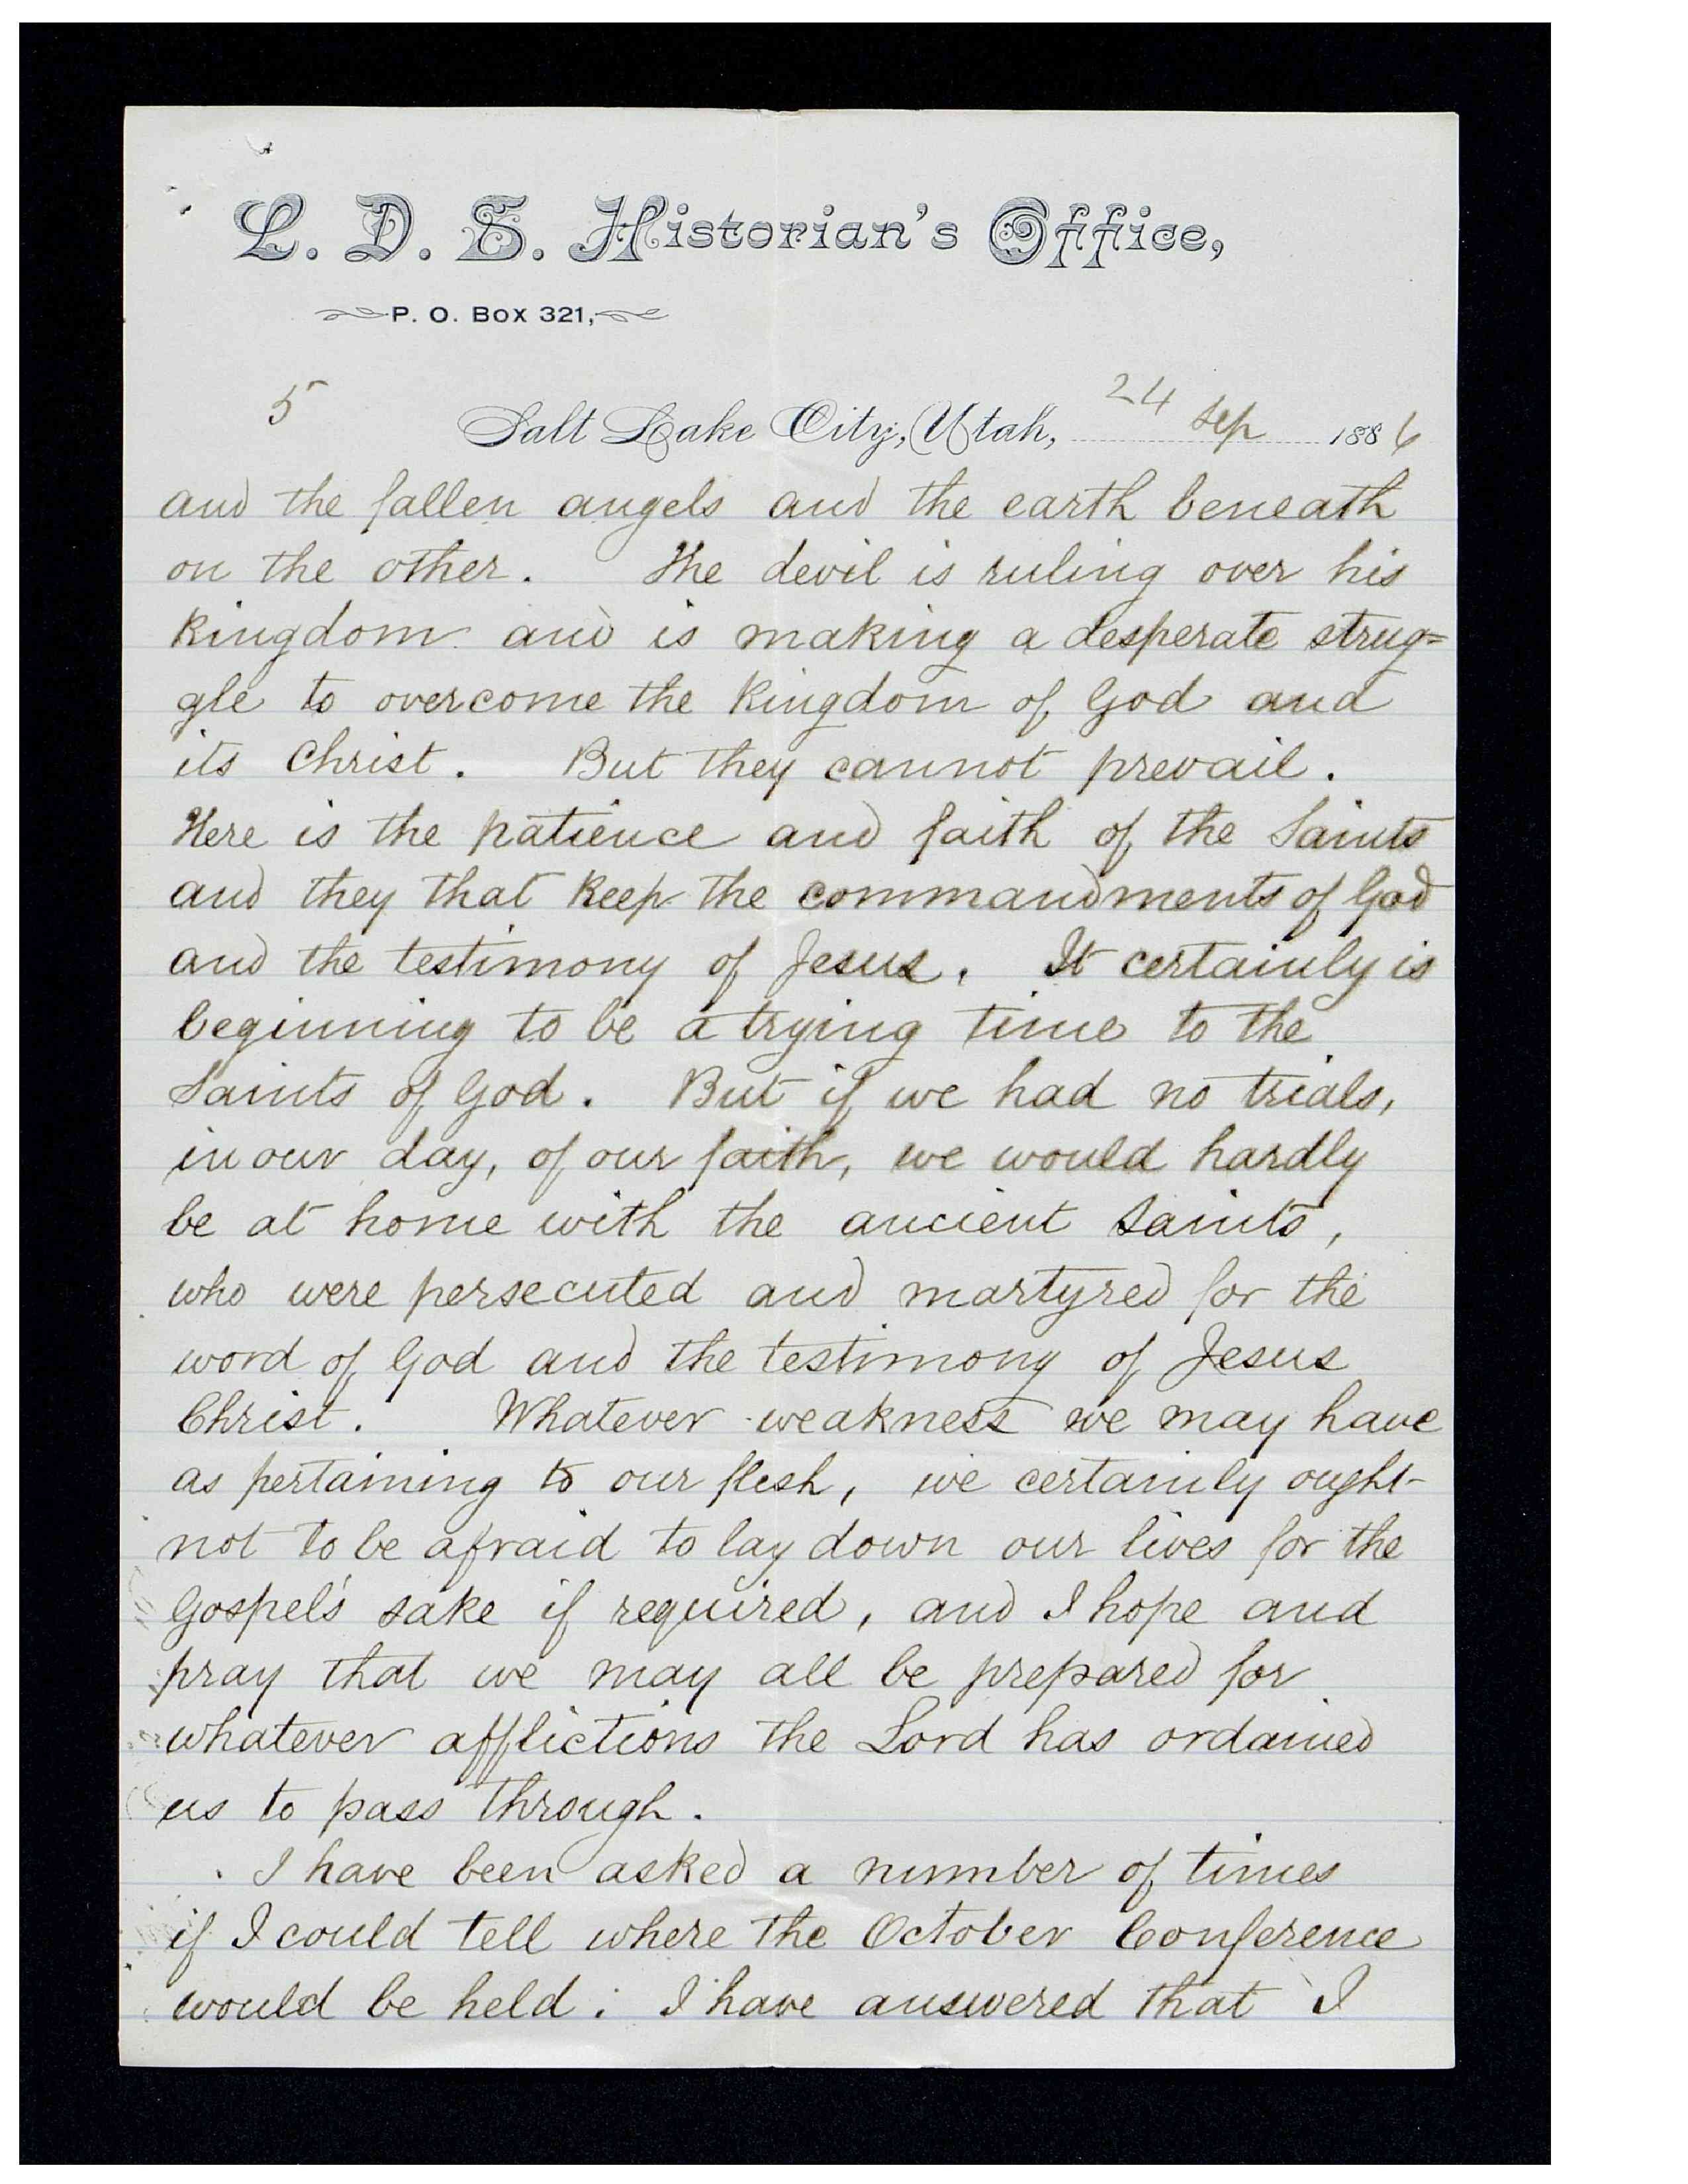 L. D. S. Historian's Office,
P. O. Box 321,
5
Salt Lake City, Utah, 24 Sep 1886
and the fallen angels and the earth beneath
on the other. The devil is ruling over his
kingdom and is making a desperate strug=
gle to overcome the kingdom of God and
its Christ. But they cannot prevail.
Here is the patience and faith of the Saints
and they that keep the commandments of God
and the testimony of Jesus. It certainly is
beginning to be a trying time to the
Saints of God. But if we had no trials,
in our day, of our faith, we would hardly
be at home with the ancient Saints,
who were persecuted and martyred for the
word of God and the testimony of Jesus
Christ. Whatever weakness we may have
as pertaining to our flesh, we certainly ought
not to be afraid to lay down our lives for the
Gospel's sake if required, and I hope and
pray that we may all be prepared for
whatever afflictions the Lord has ordained
us to pass through.
I have been asked a number of times
if I could tell where the October Conference
would be held: I have answered that I